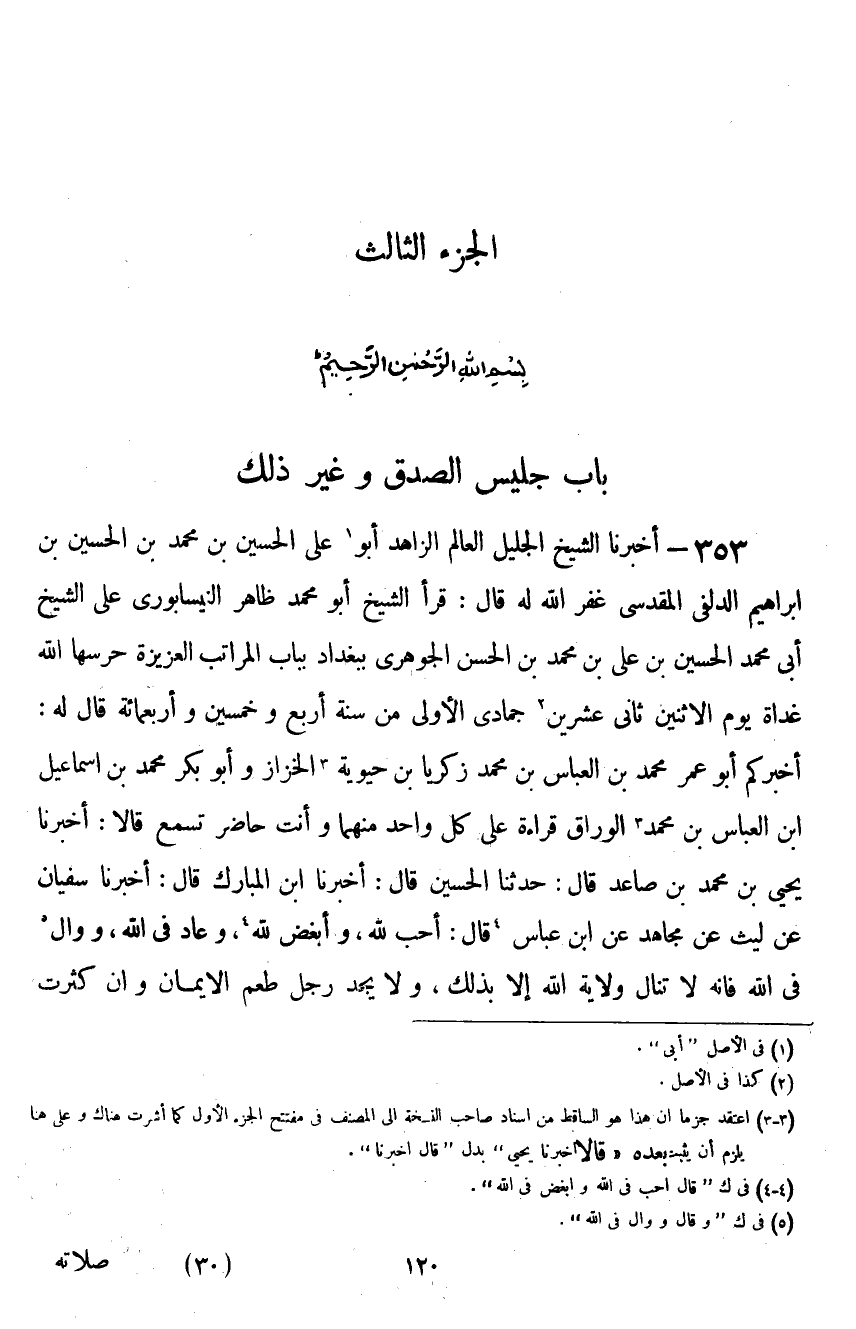 الجزء الثالث
بِسْمِ اللهِ الرَّحْمٰنِ الرَّحِيْمِ
باب جليس الصدق و غير ذلك
٣٥٣ – أخبرنا الشيخ الجليل العالم الزاهد أبو ١ على الحسين بن محمد بن الحسين بن
ابراهيم الدلفى المقدسى غفر الله له قال : قرأ الشيخ أبو محمد ظاهر النيسابورى على الشيخ
أبى محمد الحسين بن على بن محمد بن الحسن الجوهرى ببغداد بباب المراتب العزيزة حرسها الله
غداة يوم الاثنين ثانى عشرين ٢ جمادى الأولى من سنة أربع و خمسين و أربعمائة قال له :
أخبركم أبو عمر محمد بن العباس بن محمد زكريا بن حيوية ٣ الخزاز و أبو بكر محمد بن اسماعيل
ابن العباس بن محمد ٣ الوراق قراءة على كل واحد منهما و أنت حاضر تسمع قالا : أخبرنا
يحيى بن محمد بن صاعد قال : حدثنا الحسين قال : أخبرنا ابن المبارك قال : أخبرنا سفيان
عن ليث عن مجاهد عن ابن عباس ٤ قال : أحب لله ، و أبغض لله ٤ ، و عاد فى الله ، و وال ٥
فى الله فانه لا تنال ولاية الله إلا بذلك ، و لا يجد رجل طعم الايمـان و ان كثرت
(١) فى الأصل " أبى " .
(٢) كذا فى الأصل .
(٣-٣) اعتقد جزما ان هذا هو الساقط من اسناد صاحب النسخة الى المصنف فى مفتتح الجزء الأول كما أشرت هناك و على هنا
يلزم أن يثبت بعده « قالا اخبرنا يحيى " بدل " قال اخبرنا " .
(٤-٤) فى ك " قال احب فى الله و ابغض فى الله " .
(٥) فى ك " و قال و وال فى الله " .
١٢٠ (٣٠) صلاته